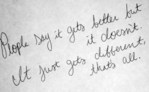 People say it gets better but
it doesn't.
It just gets different,
thats all.